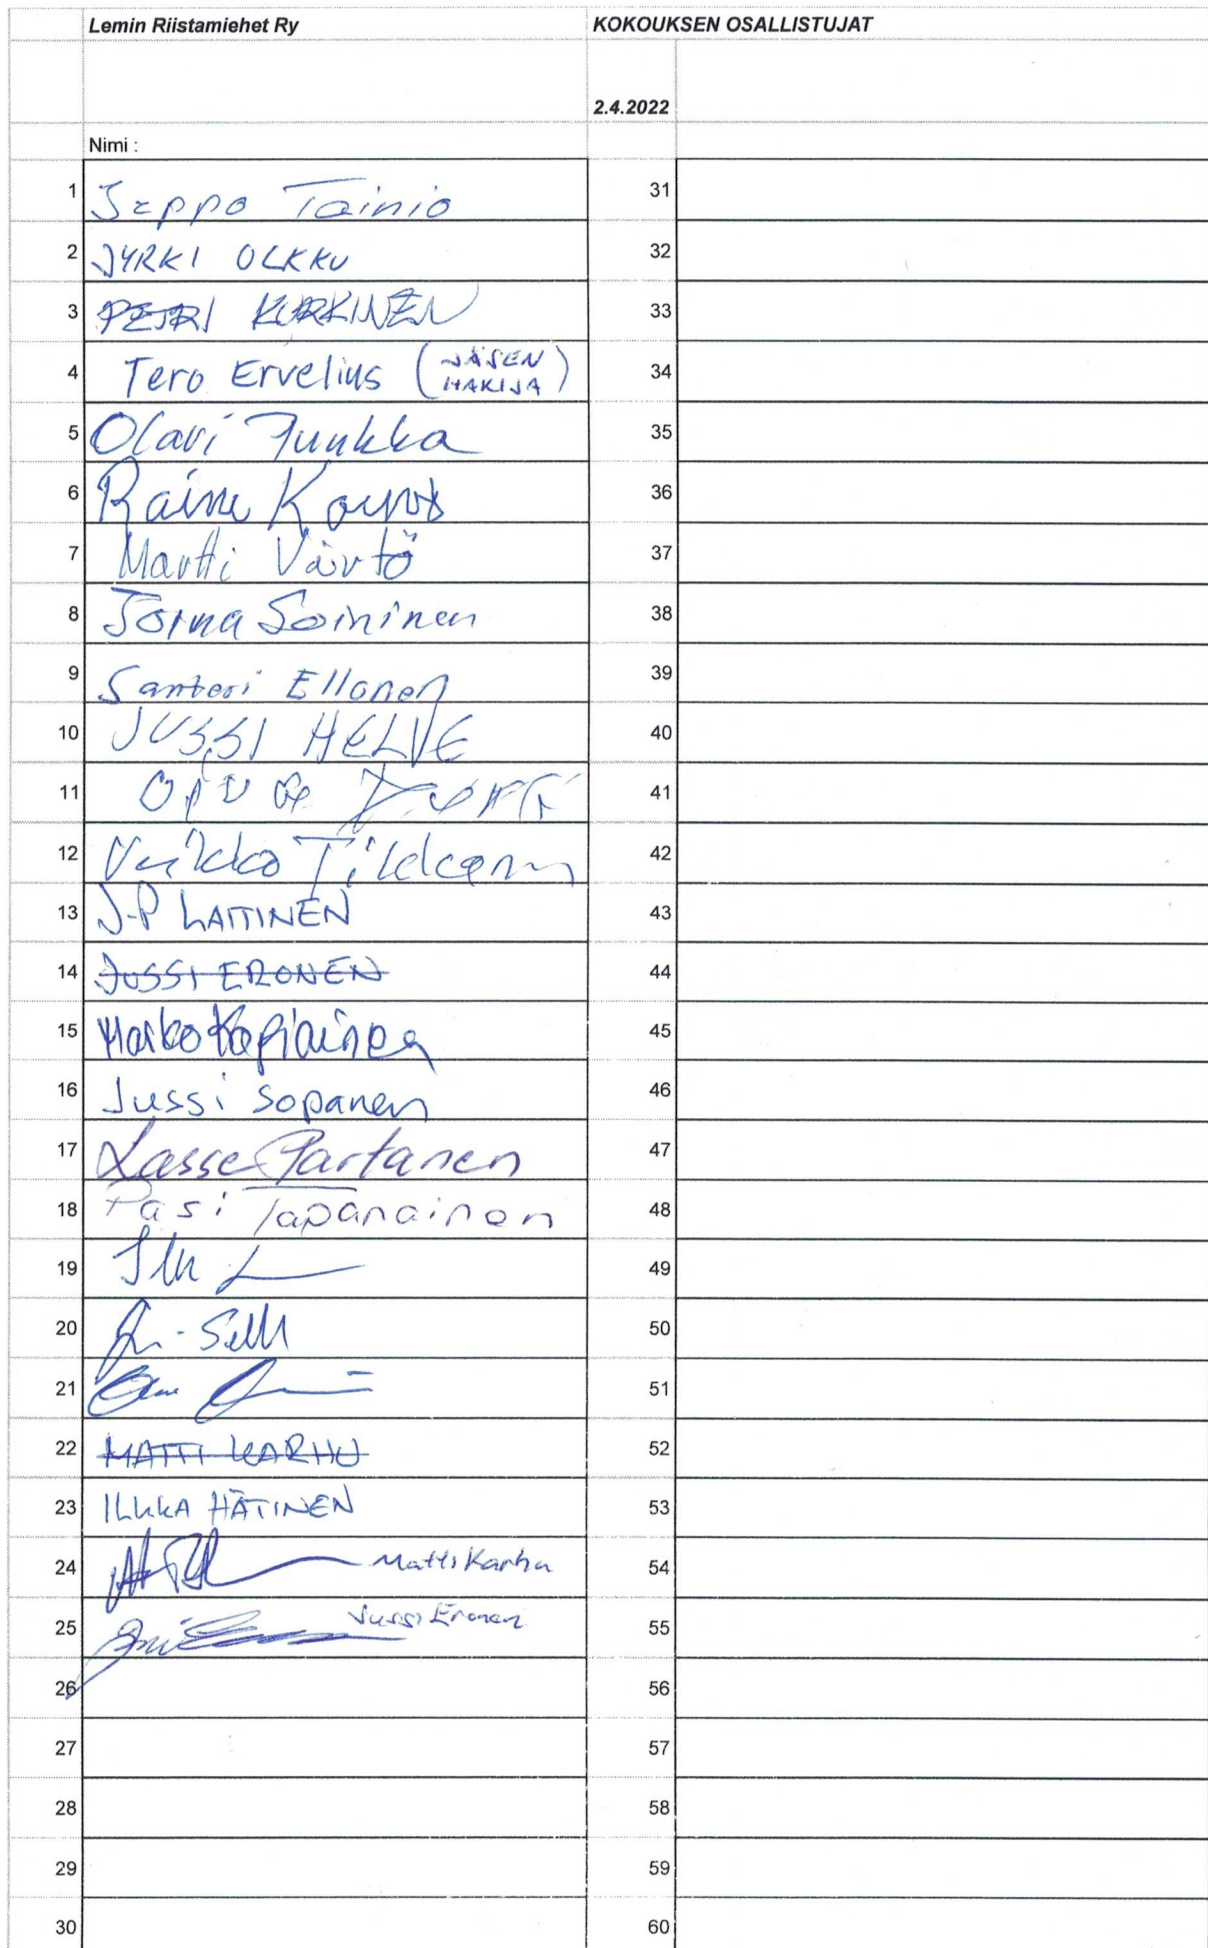 Lemin Riistamiehet Ry KOKOUKSEN OSALLISTUJAT
2.4.2022
Nimi :
1 Seppo Tainio 31
2 JYRKI OLKKU 32
3 PETRI KURKINEN 33
4 Tero Ervelius (JÄSEN HAKIJA) 34
5 Olavi Junkka 35
6 Raine 36
7 Martti Värtö 37
8 Jorma Soininen 38
9 Santeri Ellonen 39
10 JUSSI HELVE 40
11 41
12 Veikko 42
13 J-P LAITINEN 43
14 JUSSI ERONEN 44
15 Marko Kapiainen 45
16 Jussi Sopanen 46
17 Lasse Partanen 47
18 Pasi Tapanainen 48
19 49
20 50
21 51
22 MATTI KARHU 52
23 ILKKA HÄTINEN 53
24 Matti Karhu 54
25 Jussi Eronen 55
26 56
27 57
28 58
29 59
30 60